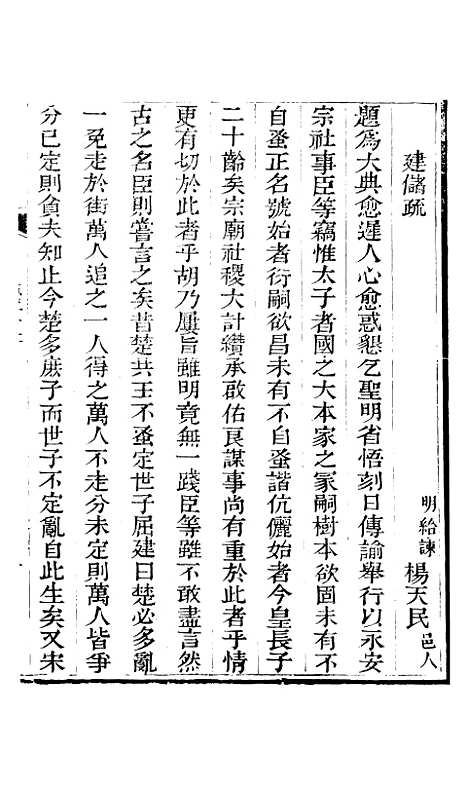 建儲疏
明給諫楊天民邑人
題為大典愈遲人心愈惑懇乞聖明省悟刻日傳諭舉行以永安
宗社事臣等竊惟太子者國之大本家之冢嗣樹本欲固未有不
自蚤正名號始者衍嗣欲昌未有不自蚤諧伉儷始者今皇長子
二十齡矣宗廟社稷大計纘承啟佑良謀事尚有重於此者乎情
更有切於此者乎胡乃屢旨雖明竟無一踐臣等雖不敢盡言然
古之名臣則嘗言之矣昔楚共王不蚤定世子屈建曰楚必多亂
一免走於街萬人追之一人得之萬人不走分未定則萬人皆爭
分已定則貪夫知止今楚多庶子而世子不定亂自此生矣又宋